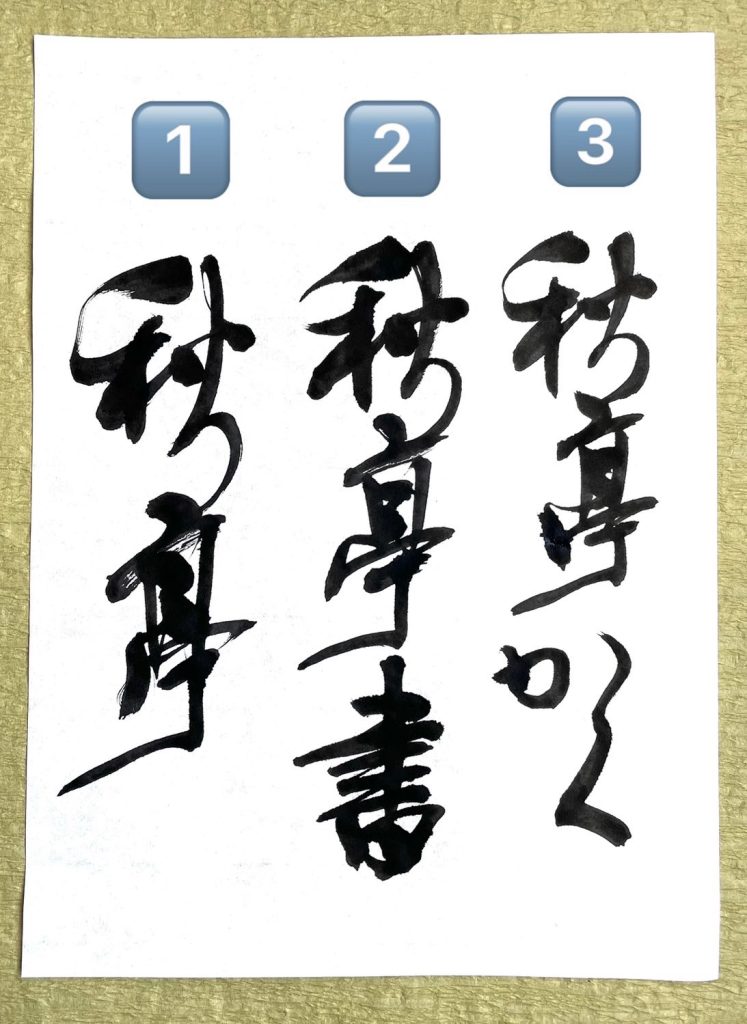 1
秋亭
2
秋亭書
3
秋亭かく